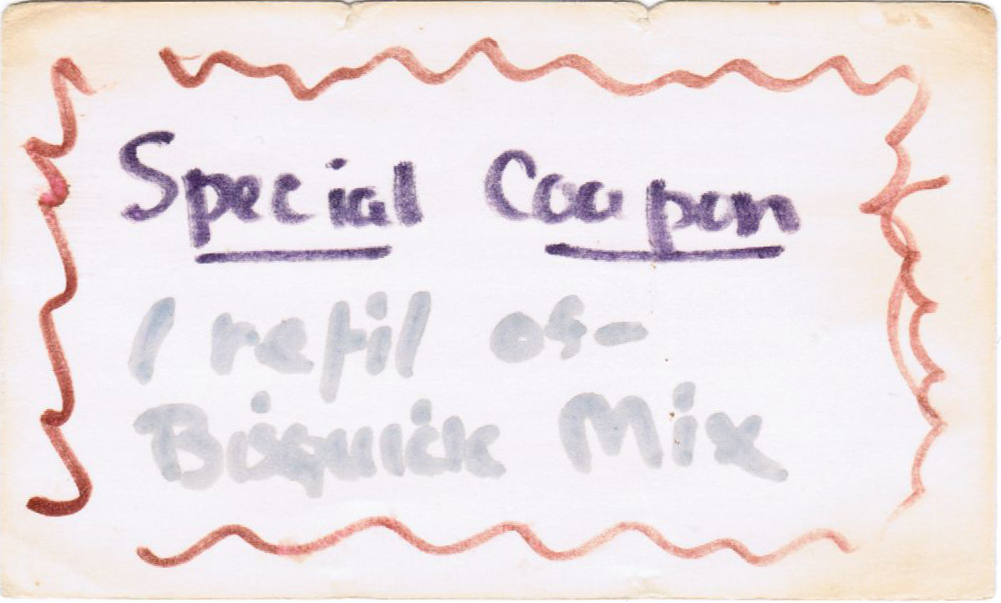 Special Coupon
1 refil of-
Bisquick Mix